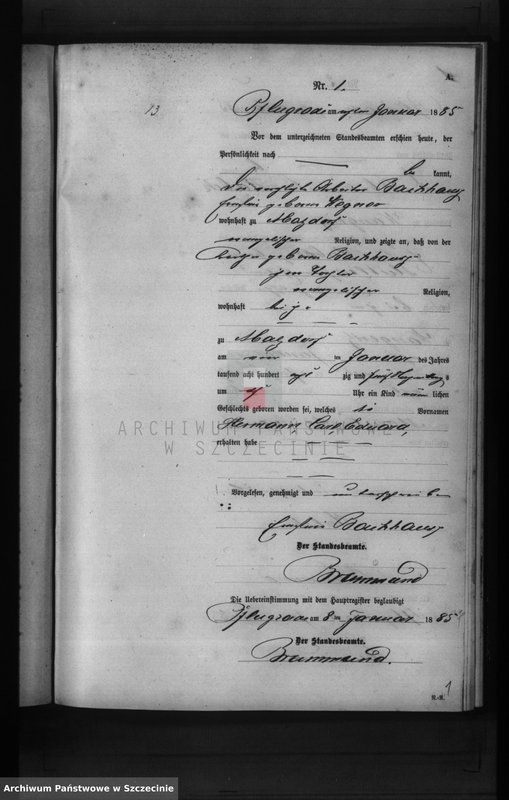 A.
Nr. 1.
13
Pflugrade am achten Januar 1885
Vor dem unterzeichneten Standesbeamten erschien heute, der
Persönlichkeit nach
be kannt,
Die verehelichte Arbeiter Backhaus
geborene Wegner
wohnhaft zu Matzdorf
evangelischer Religion, und zeigte an, daß von der
geborene Backhaus
evangelischer Religion,
wohnhaft bei ihr
zu Matzdorf
am Januar des Jahres
tausend acht hundert acht zig und fünf
um Uhr ein Kind männ lichen
Geschlechts geboren worden sei, welches die Vornamen
Hermann Carl Eduard,
erhalten habe
ARCHIWUM PAŃSTWOWE
W SZCZECINIE
Vorgelesen, genehmigt und unterschrieben
Backhaus
Der Standesbeamte.
Die Uebereinstimmung mit dem Hauptregister beglaubigt
Pflugrade am 8 ten Januar 1885
Der Standesbeamte.
1
Archiwum Państwowe w Szczecinie